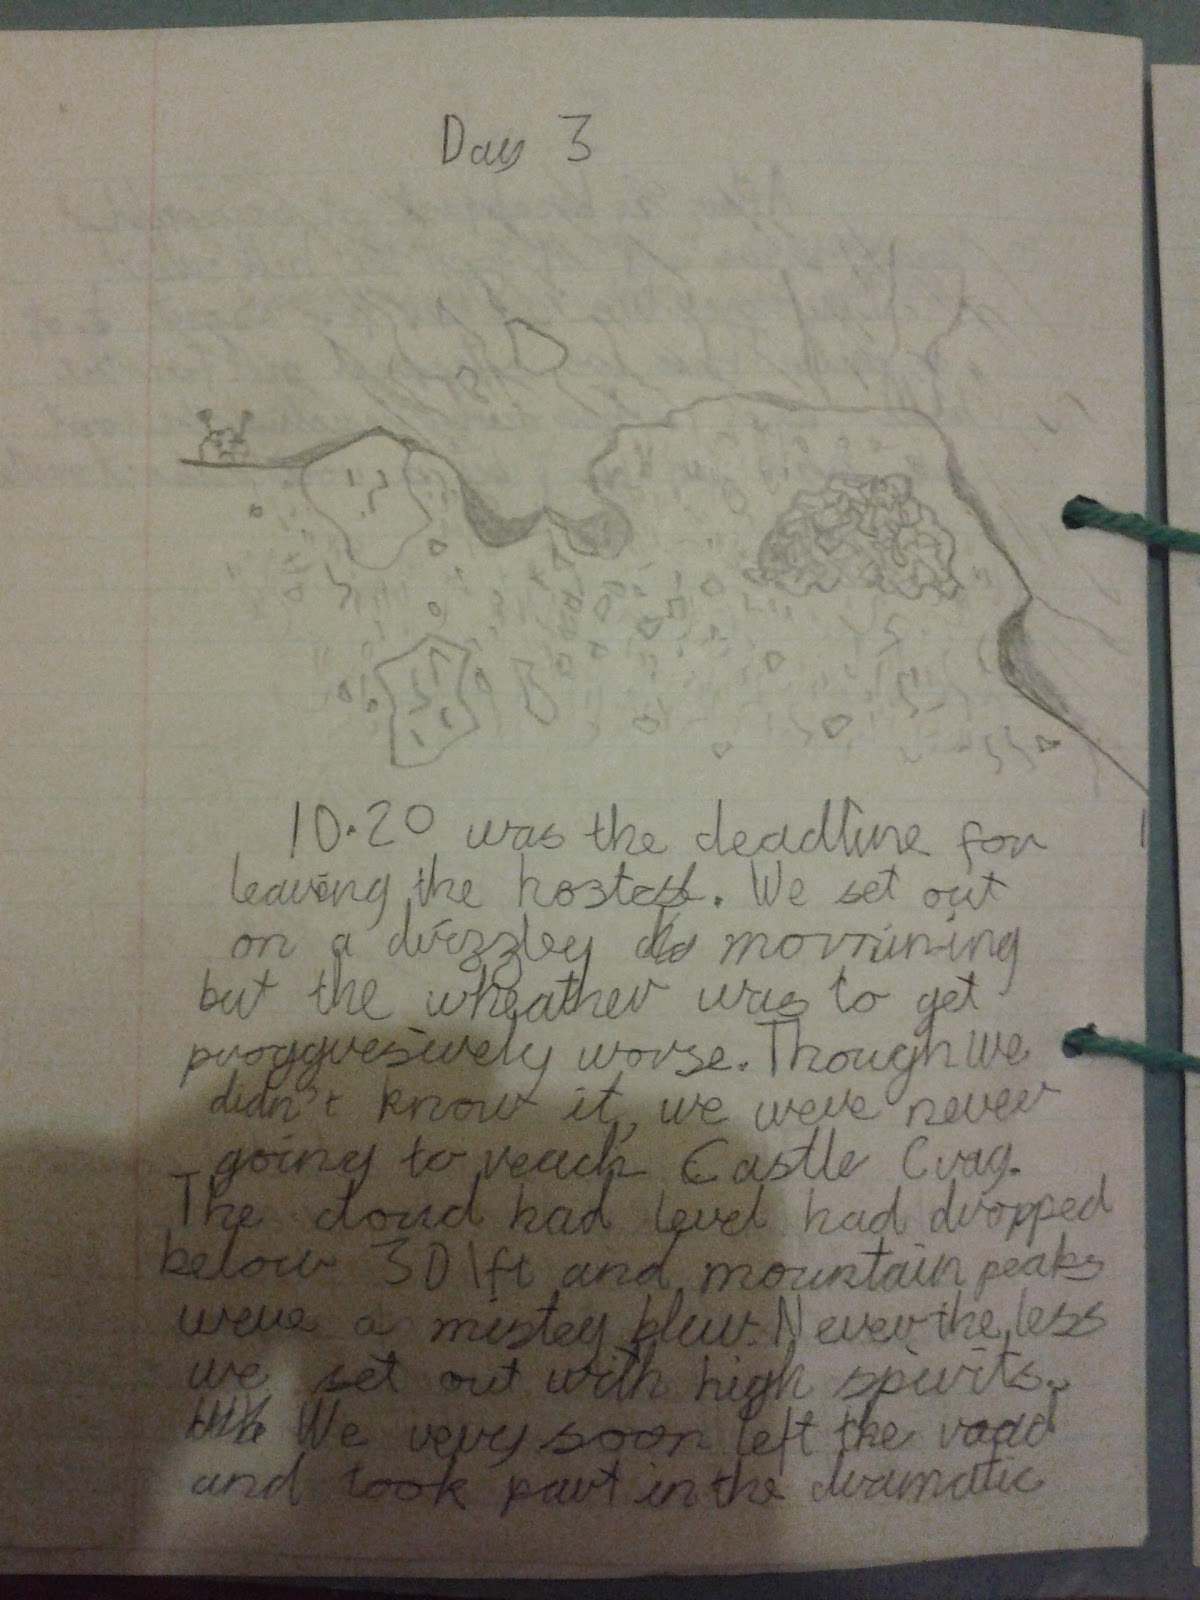 Day 3
10.20 was the deadline for
leaving the hostel. We set out
on a drizzley morrning
but the wheather was to get
proggresively worse. Though we
didn't know it, we were never
going to reach Castle Crag.
The cloud had level had dropped
below 301ft and mountain peaks
were a mistey blur. Never the less
we set out with high spirits.
We very soon left the road
and took part in the dramatic